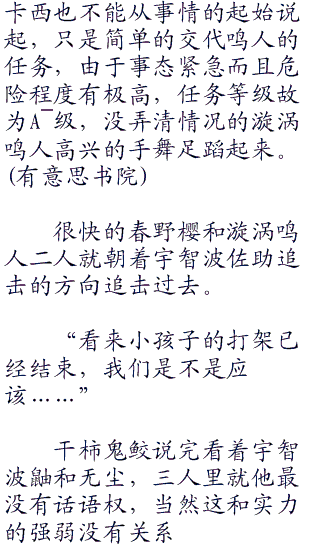 卡西也不能从事情的起始说
起，只是简单的交代鸣人的
任务，由于事态紧急而且危
险程度有极高，任务等级故
为A¯级，没弄清情况的漩涡
鸣人高兴的手舞足蹈起来。
(有意思书院)
很快的春野樱和漩涡鸣
人二人就朝着宇智波佐助追
击的方向追击过去。
“看来小孩子的打架已
经结束，我们是不是应
该……”
干柿鬼鲛说完看着宇智
波鼬和无尘，三人里就他最
没有话语权，当然这和实力
的强弱没有关系